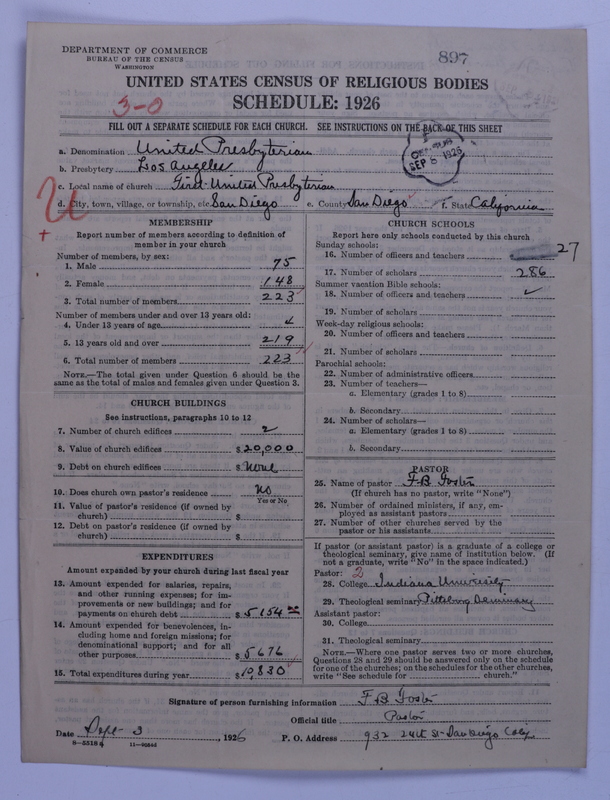 DEPARTMENT OF COMMERCE
BUREAU OF THE CENSUS
WASHINGTON
897
UNITED STATES CENSUS OF RELIGIOUS BODIES
SCHEDULE: 1926
3-0
FILL OUT A SEPARATE SCHEDULE FOR EACH CHURCH. SEE INSTRUCTIONS ON THE BACK OF THIS SHEET
CENSUS
SEP 8 1926
a. Denomination United Presbyterian
b. Presbytery Los Angeles
c. Local name of church First United Presbyterian
d. City, town, village, or township, etc. San Diego e. County San Diego f. State California
U
+
MEMBERSHIP
Report number of members according to definition of
member in your church
Number of members, by sex:
1. Male 75
2. Female 148
3. Total number of members 223
Number of members under and over 13 years old:
4. Under 13 years of age 4
5. 13 years old and over 219
6. Total number of members 223
NOTE.—The total given under Question 6 should be
same as the total of males and females given under Question 3.
CHURCH BUILDINGS
See instructions, paragraphs 10 to 12
7. Number of church edifices 2
8. Value of church edifices $20,000
9. Debt on church edifices $ None
10. Does church own pastor's residence No
Yes or No
11. Value of pastor's residence (if owned by
church) $
12. Debt on pastor's residence (if owned by
church) $
EXPENDITURES
Amount expended by your church during last fiscal year
13. Amount expended for salaries, repairs,
and other running expenses; for im-
provements or new buildings; and for
payments on church debt $5154
14. Amount expended for benevolences, in-
cluding home and foreign missions; for
denominational support; and for all
other purposes $5676
15. Total expenditures during year $10830
CHURCH SCHOOLS
Report here only schools conducted by this church
Sunday schools:
16. Number of officers and teachers 27
17. Number of scholars 286
Summer vacation Bible schools:
18. Number of officers and teachers ✓
19. Number of scholars
Week-day religious schools:
20. Number of officers and teachers
21. Number of scholars
Parochial schools:
22. Number of administrative officers
23. Number of teachers—
a. Elementary (grades 1 to 8)
b. Secondary
24. Number of scholars—
a. Elementary (grades 1 to 8)
b. Secondary
PASTOR
25. Name of pastor F.B. Foster
(If church has no pastor, write "None")
26. Number of ordained ministers, if any, em-
ployed as assistant pastors
27. Number of other churches served by the
pastor or his assistants
If pastor (or assistant pastor) is a graduate of a college or
theological seminary, give name of institution below. (If
not a graduate, write "No" in the space indicated.)
Pastor: 2
28. College Indiana University
29. Theological seminary Pittsburg Seminary
Assistant pastor:
30. College
31. Theological seminary
NOTE.—Where one pastor serves two or more churches,
Questions 28 and 29 should be answered only on the schedule
for one of the churches; on the schedules for the other churches,
write "See schedule for church."
Signature of person furnishing information F B Foster
Official title Pastor
Date Sept 3, 1926 P. O. Address 932 24th St San Diego Calif
8—5518